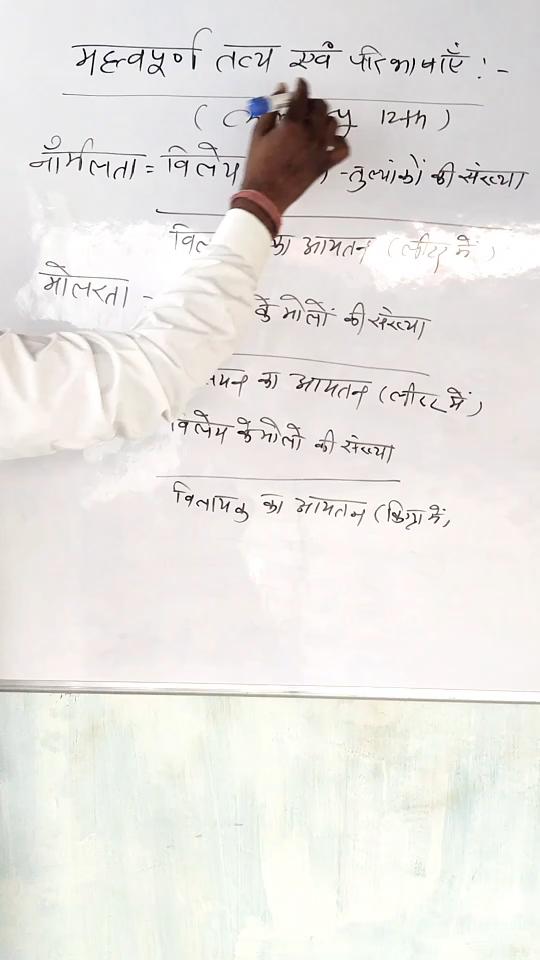 महत्वपूर्ण तत्य एवं परिभाषाएँ :-
( 12th )
नॉर्मलता = विलेय -तुल्यांकों की संख्या
का आयतन (लीटर में)
मोलरता - के मोलों की संख्या
का आयतन (लीटर में)
विलेय के मोलो की संख्या
विलायक का आयतन (किग्रा में)